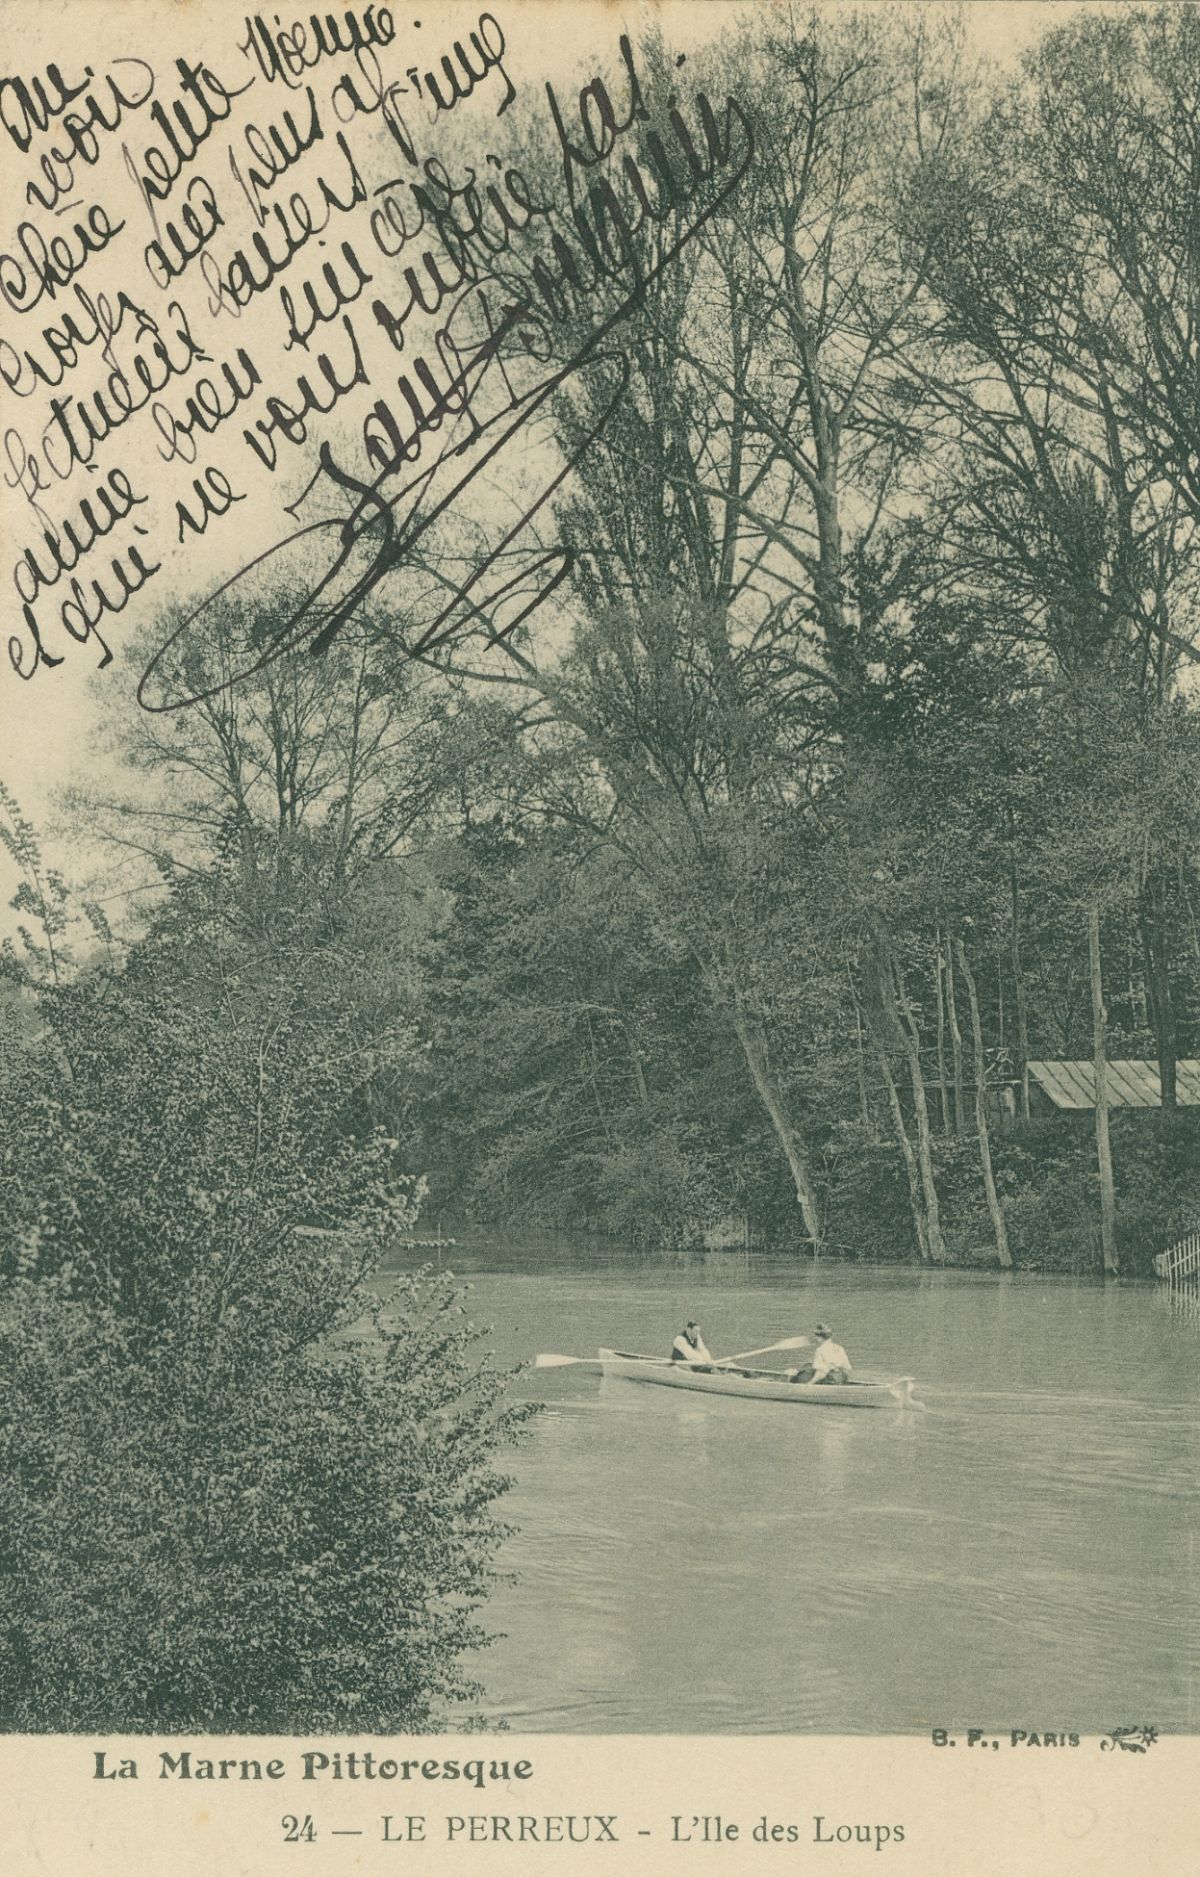 Au
revoir
chère petite Noémie.
croyez aux plus af
fectueux baisers d'une
amie bien sincère
et qui ne vous oublie pas.
B. F., PARIS
La Marne Pittoresque
24 — LE PERREUX - L'Ile des Loups